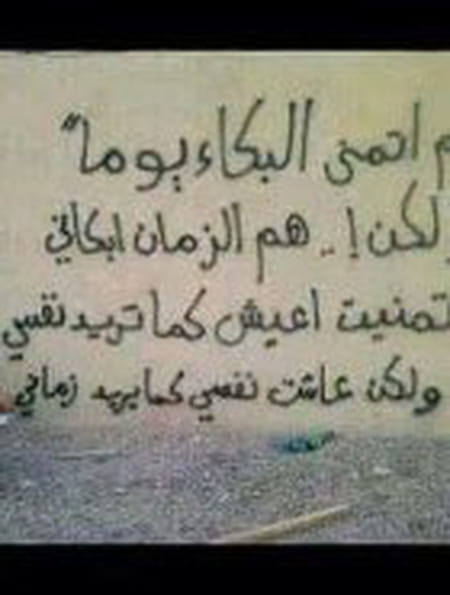 م اتمنى البكاء يوماً
لكن !.. هم الزمان ابكاني
تمنيت اعيش كما تريد نفسي
ولكن عاشت نفسي كما يريد زماني